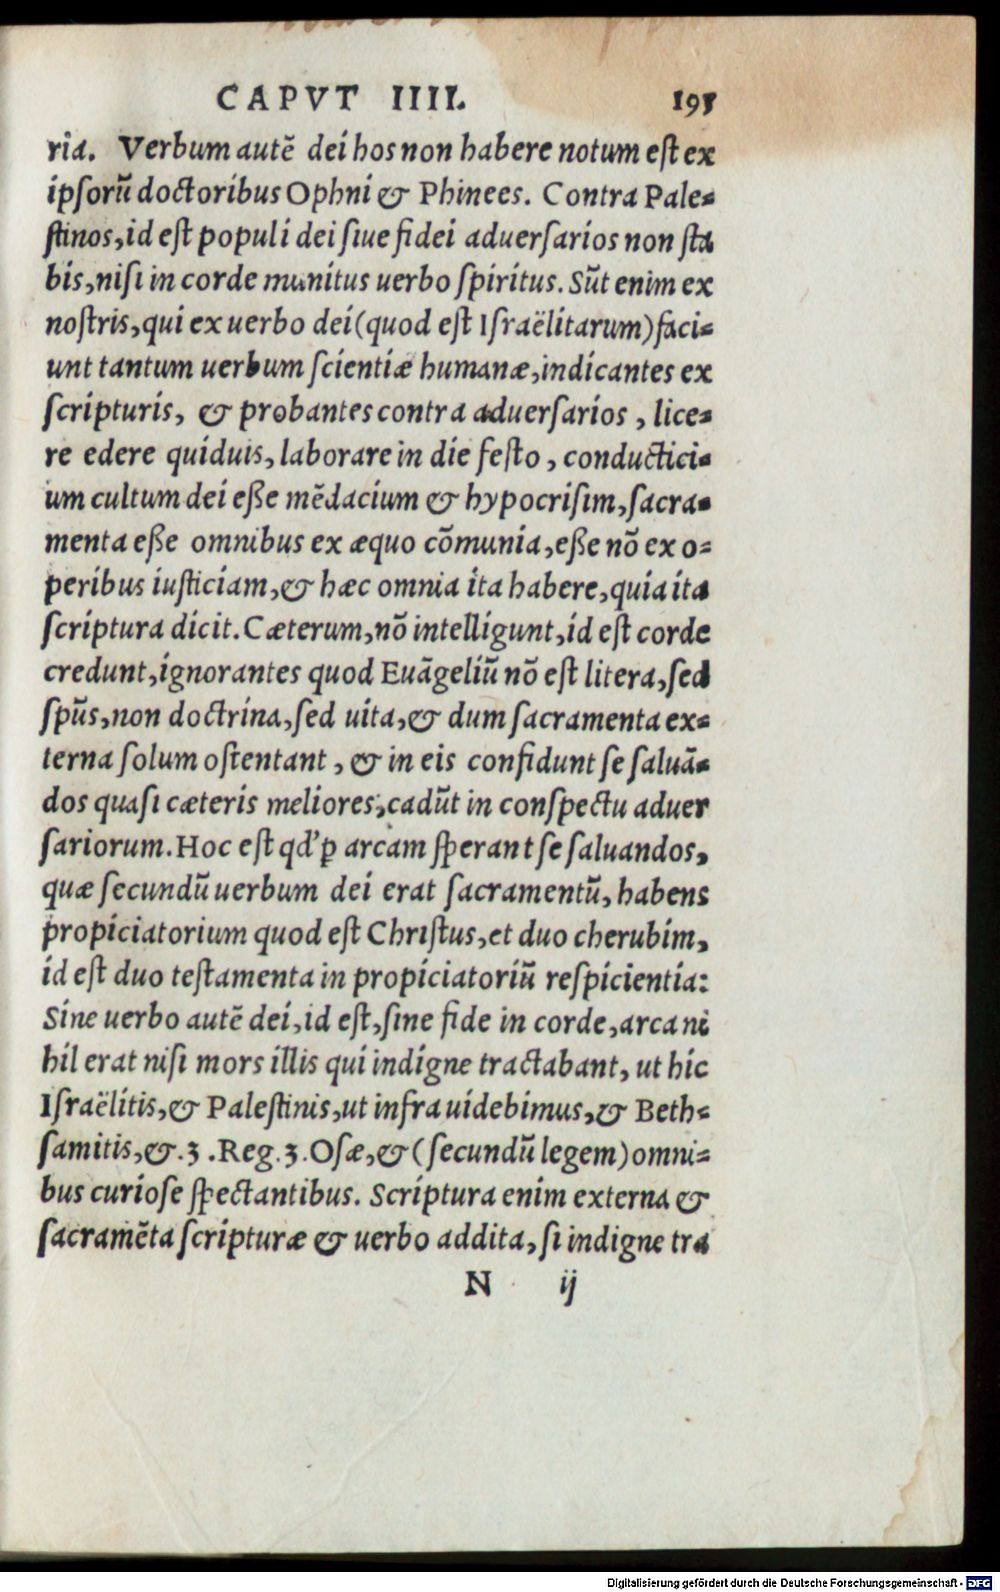 CAPVT IIII. 195
ria. Verbum autē dei hos non habere notum est ex
ipsorū doctoribus Ophni & Phinees. Contra Pale-
stinos, id est populi dei siue fidei aduersarios non sta
bis, nisi in corde munitus uerbo spiritus. Sūt enim ex
nostris, qui ex uerbo dei (quod est Israëlitarum) faci-
unt tantum uerbum scientiæ humanæ, indicantes ex
scripturis, & probantes contra aduersarios, lice-
re edere quiduis, laborare in die festo, conductici-
um cultum dei eße mēdacium & hypocrisim, sacra-
menta eße omnibus ex æquo cōmunia, eße nō ex o-
peribus iusticiam, & hæc omnia ita habere, quia ita
scriptura dicit. Cæterum, nō intelligunt, id est corde
credunt, ignorantes quod Euāgeliū nō est litera, sed
spūs, non doctrina, sed uita, & dum sacramenta ex-
terna solum ostentant, & in eis confidunt se saluā-
dos quasi cæteris meliores, cadūt in conspectu aduer
sariorum. Hoc est qd' ꝑ arcam sperant se saluandos,
quæ secundū uerbum dei erat sacramentū, habens
propiciatorium quod est Christus, et duo cherubim,
id est duo testamenta in propiciatoriū respicientia:
Sine uerbo autē dei, id est, sine fide in corde, arca ni
hil erat nisi mors illis qui indigne tractabant, ut hic
Israëlitis, & Palestinis, ut infra uidebimus, & Beth-
samitis, &. 3. Reg. 3. Osæ, & (secundū legem) omni-
bus curiose spectantibus. Scriptura enim externa &
sacramēta scripturæ & uerbo addita, si indigne tra
N ij
Digitalisierung gefördert durch die Deutsche Forschungsgemeinschaft - DFG